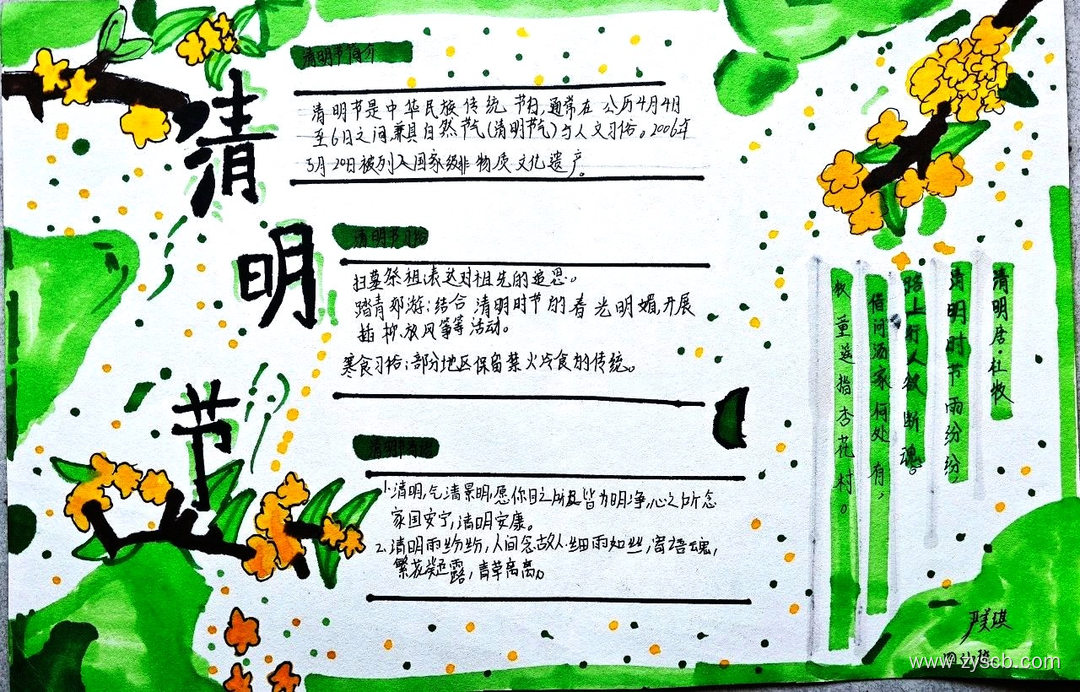 清明节
清明节简介
清明节是中华民族传统节日,通常在公历4月4日
至6日之间兼具自然节气(清明节气)与人文习俗。2006年
5月20日被列入国家级非物质文化遗产。
清明节习俗
扫墓祭祖:表达对祖先的追思。
踏青郊游:结合清明时节的春光明媚,开展
插柳、放风筝等活动。
寒食习俗:部分地区保留禁火冷食的传统。
1.清明,气清景明,愿你目之所及皆为明净,心之所念
家国安宁,清明安康。
2.清明雨纷纷,人间念故人.细雨如丝,寄语魂,
繁花凝露,青草离离。
清明唐·杜牧
清明时节雨纷纷,
路上行人欲断魂。
借问酒家何处有,
牧童遥指杏花村。
www.zyscb.com